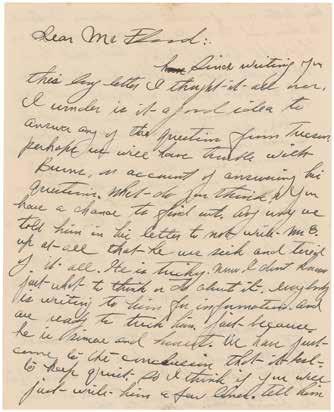 Dear Mr Flood:.
Since writing you
this long letter I thought it all over.
I wonder is it a good idea to
answer any of the questions from Tucson
perhaps we will have trouble with
Burns, on account of answering his
questions. What do you think if you
have a chance to find out, any way we
told him in his letter to not write Mr E.
up at all that he was sick and tired
of it all. He is tricky. Now I dont know
just what to think or do about it, everybody
is writing to him for information and
are ready to trick him, just because
he is sincere and honest. We have just
come to the conclusion that its best
to keep quiet. So I think if you
just write him a few lines. tell him